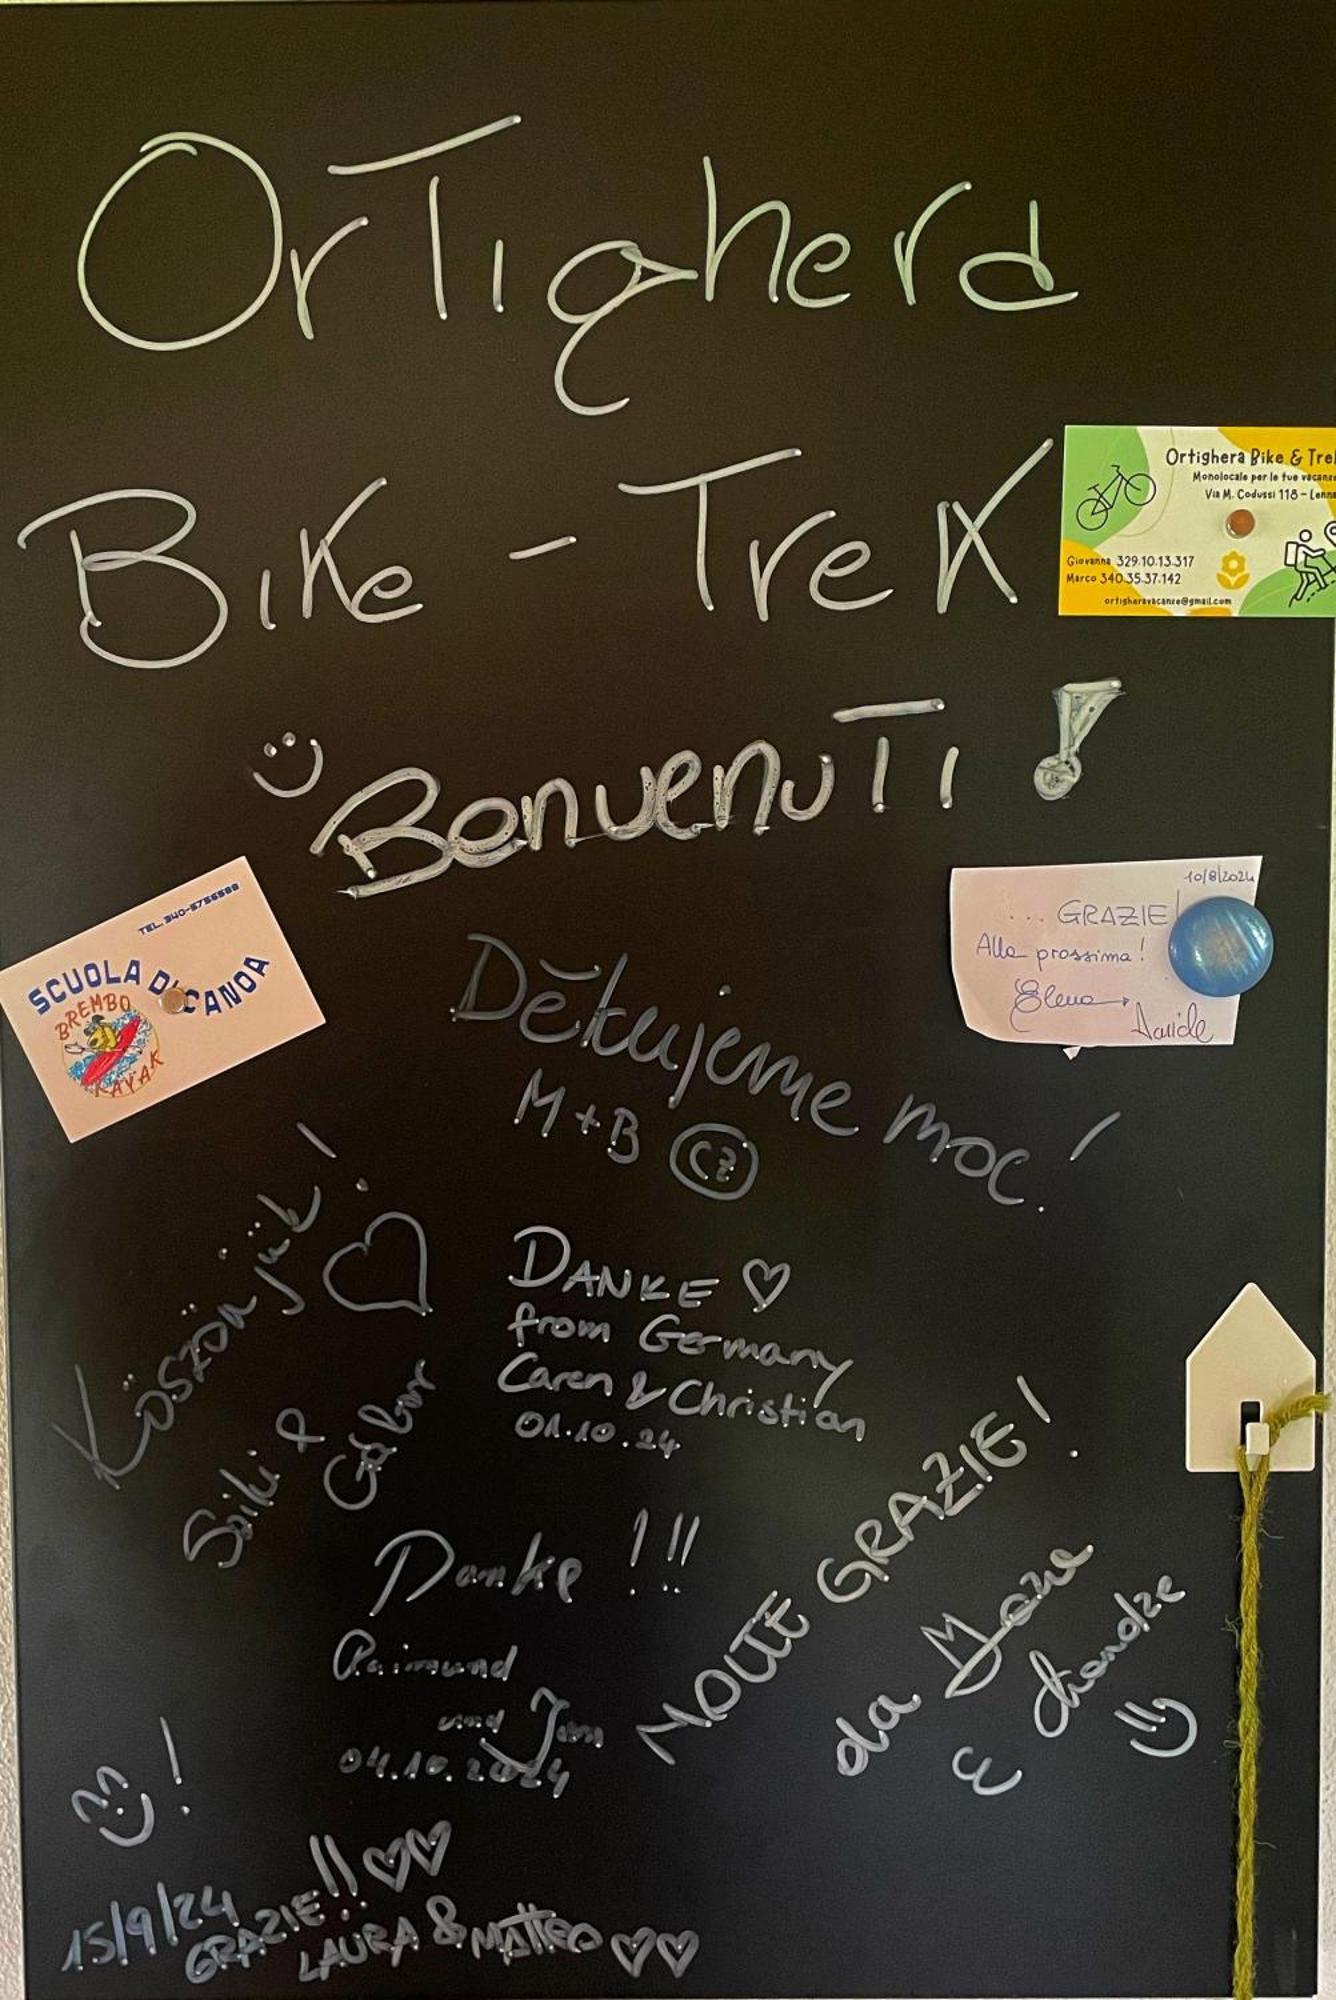 OrTighera
Bike - Trek
Ortighera Bike & Tre
Monolocale per le tue vacanze
Via M. Codussi 118 - Lenna
Giovanna 329.10.13.317
Marco 340.35.37.142
ortigheravacanze@gmail.com
BenvenuTi!
TEL. 340-5736588
SCUOLA DI CANOA
BREMBO
KAYAK
10/8/2024
... GRAZIE!
Alla prossima!
Elena
Davide
Děkujeme moc!
M+B CZ
Köszönjük!
& Gábor
DANKE ♡
from Germany
Caren & Christian
01.10.24
Danke !!!
Raimund
und Jan
04.10.2024
MOLTE GRAZIE!
da
e
!
15/9/24
GRAZIE!! ♡♡
LAURA & MATTEO ♡♡